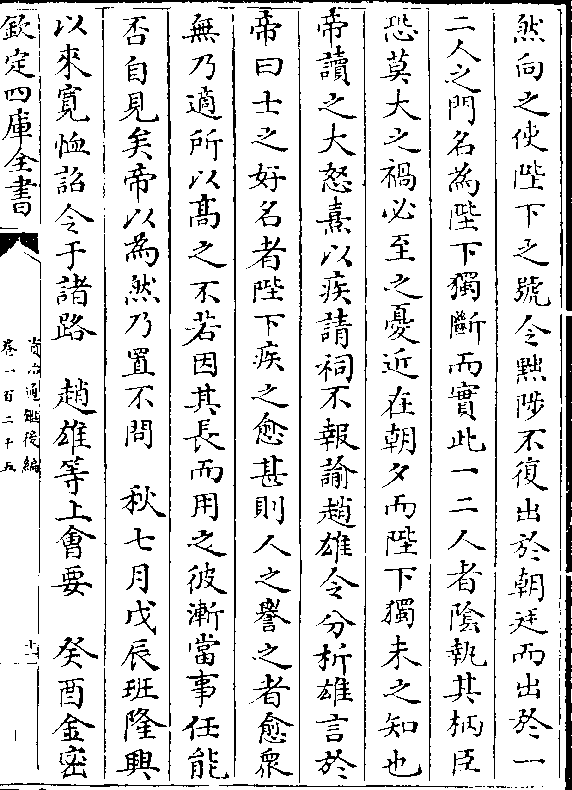 然向之使陛下之號令黜陟不復出於朝廷而出於一
二人之門名為陛下獨斷而實此一二人者陰執其柄臣
恐莫大之禍必至之憂近在朝夕而陛下獨未之知也
帝讀之大怒熹以疾請祠不報諭趙雄令分析雄言於
帝曰士之好名者陛下疾之愈甚則人之譽之者愈衆
無乃適所以髙之不若因其長而用之彼漸當事任能
否自見矣帝以為然乃置不問　秋七月戊辰班隆興
以來寛恤詔令于諸路　趙雄等上會要　癸酉金密
欽定四庫全書
資治通鑑後編
卷一百二十五